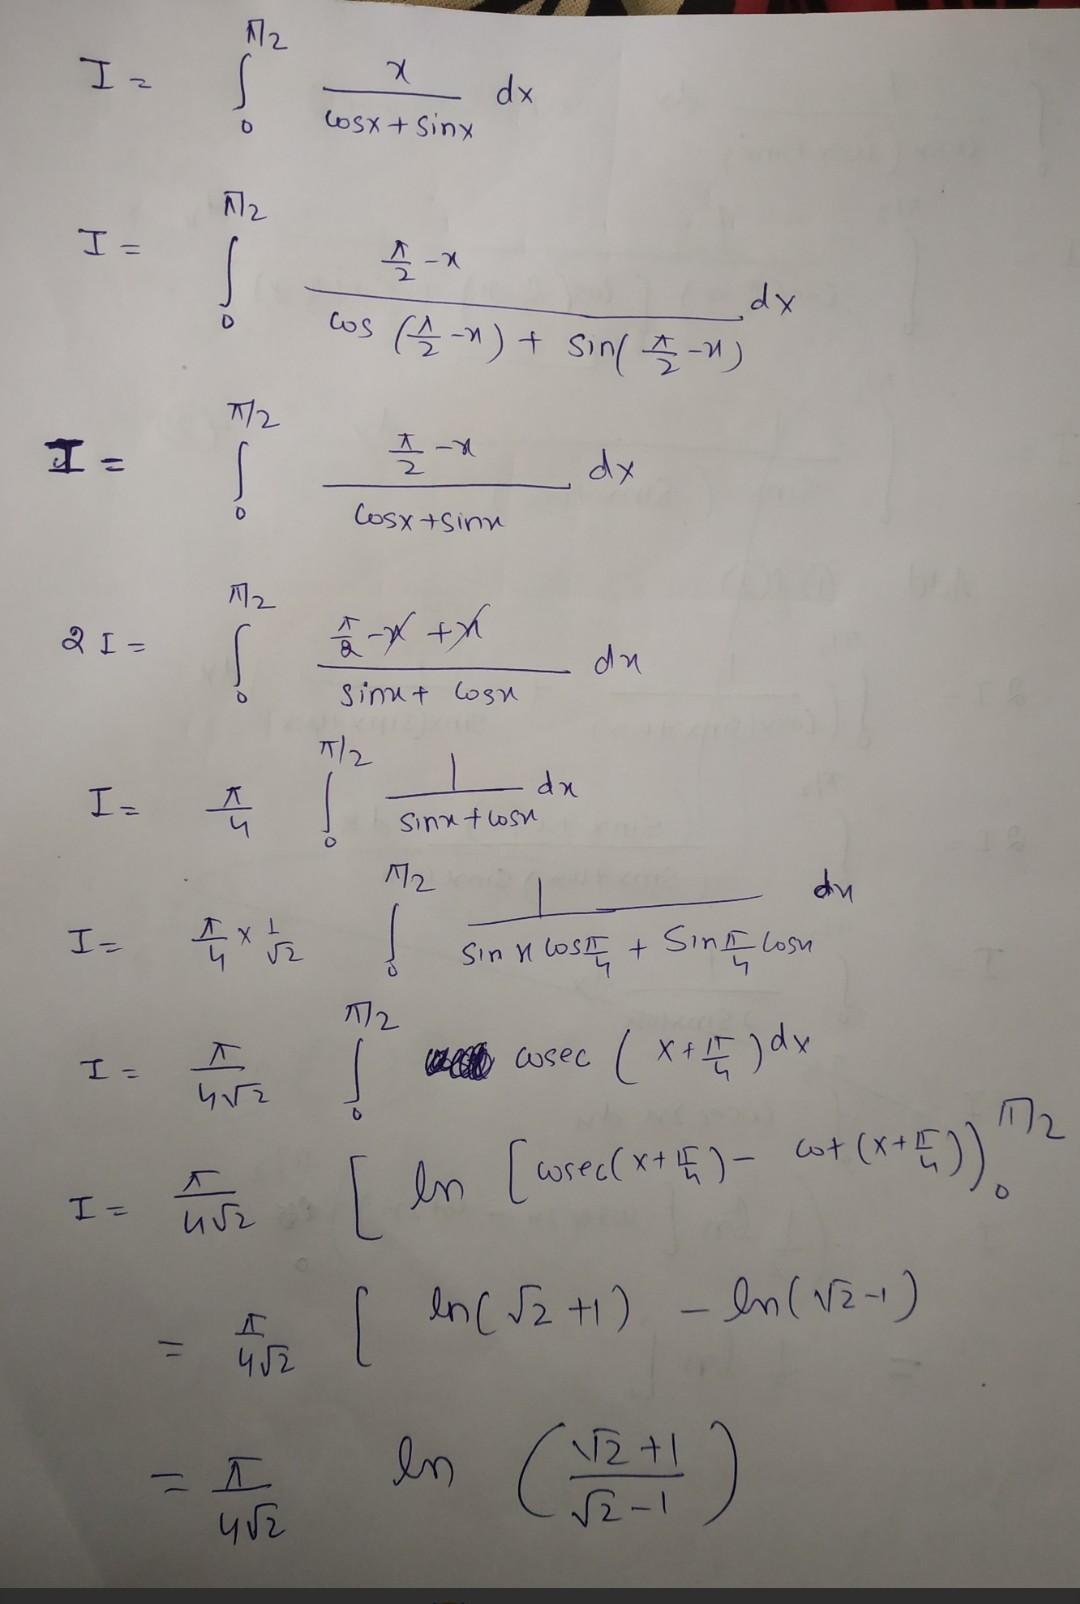 I = ∫₀^{π/2} x/(cosx + sinx) dx
I = ∫₀^{π/2} (π/2 - x)/(cos(π/2 - x) + sin(π/2 - x)) dx
I = ∫₀^{π/2} (π/2 - x)/(cosx + sinx) dx
2I = ∫₀^{π/2} (π/2 - x + x)/(sinx + cosx) dx
I = π/4 ∫₀^{π/2} 1/(sinx + cosx) dx
I = π/4 × 1/√2 ∫₀^{π/2} 1/(sin x cos π/4 + sin π/4 cosx) dx
I = π/(4√2) ∫₀^{π/2} cosec (x + π/4) dx
I = π/(4√2) [ ln [cosec(x + π/4) - cot (x + π/4))₀^{π/2}
= π/(4√2) [ ln(√2 + 1) - ln(√2 - 1)
= π/(4√2) ln ((√2 + 1)/(√2 - 1))